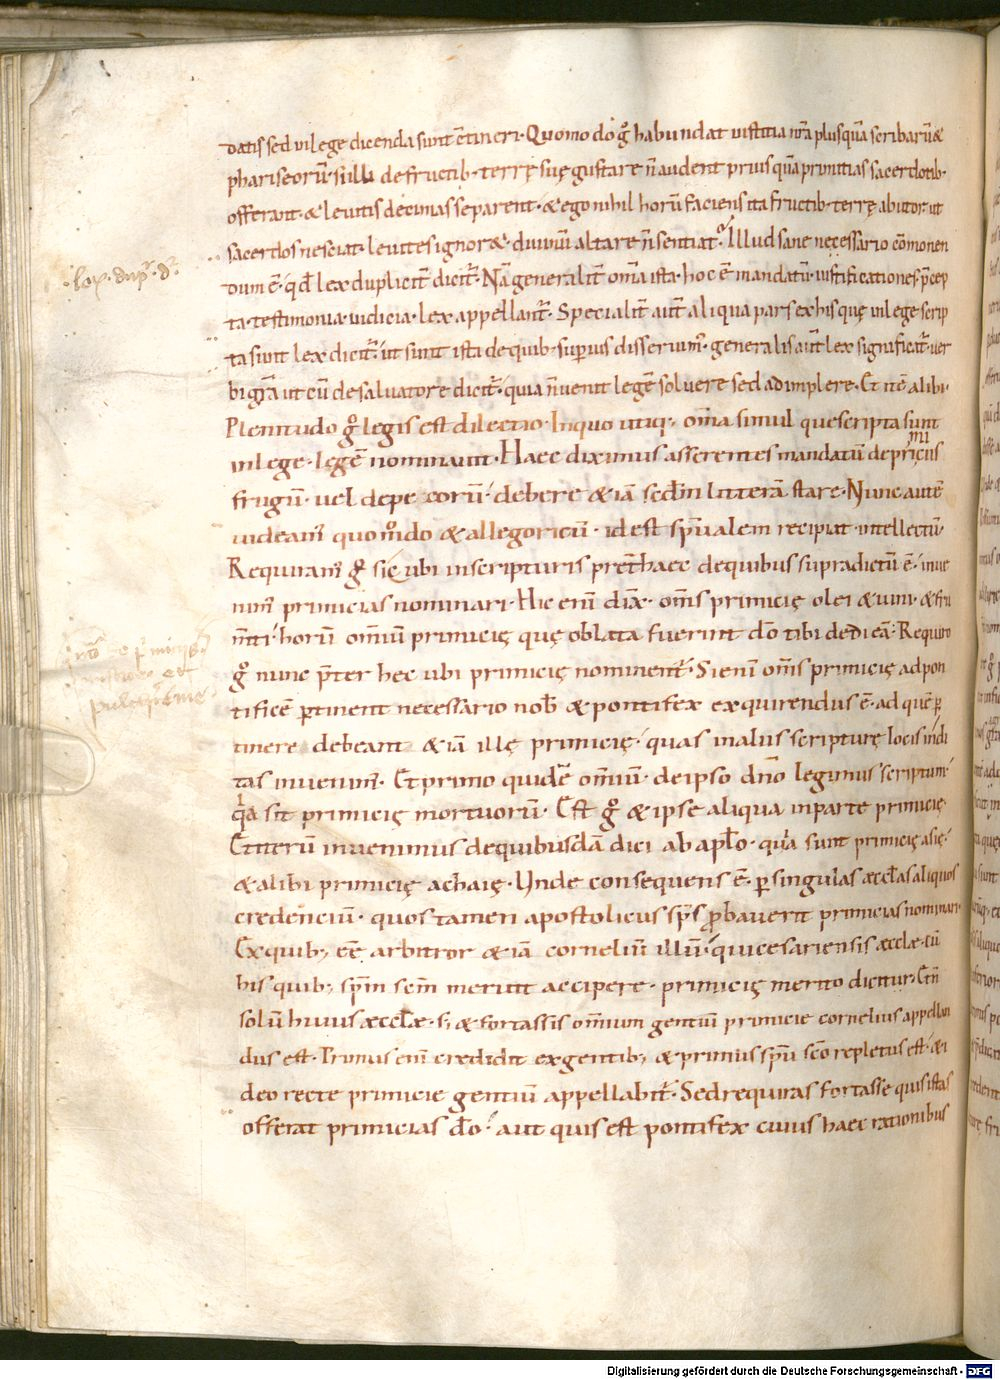 datis sed in lege dicenda sunt ētineri · Quomodo ḡ habundat iustitia nr̄a plusquā scribarū &
phariseorū · si illi de fructib · terrę suę gustare n̄ audent prius quā primitias sacerdotib ·
offerant · & leuitis decimas separent · & ego nihil horū faciens ita fructib · terrę abutor ut
sacerdos nesciat · leuites ignor& · diuinū altare n̄ sentiat · Illud sane necessario cōmonen
dum ē · qd̄ lex duplicit̄ dicit̄ · Nā generalit̄ om̄a ista · hoc ē mandatū · iustificationes · p̄cep
ta · testimonia · iudicia · lex appellant̄ · Specialit̄ aut̄ aliqua pars ex his quę in lege scrip
ta sunt lex dicit̄ · ut sunt ista de quib · superius disseruim̄ · generalis aut̄ lex significat̄ · uer
bi gr̄a ut cū de saluatore dicit̄ · quia n̄ uenit legē soluere sed adimplere · Et itē alibi ·
Plenitudo ḡ legis est dilectio · In quo utiq · om̄a simul que scripta sunt
in lege · legē nominauit · Haec diximus asserentes mandatū de primicus
frugū · uel de pecorū · debere & iā scd̄m litterā stare · Nunc autē
uideam̄ quom̊do & allegoricū · id est sp̄ualem recipiat · intellectū ·
Requiram̄ ḡ sic ubi in scripturis pret̄ haec de quibus supradictū ē · inue
nim̄ primicias nominari · Hic eni dix̄ · om̄s primicię olei & uini · & fru
m̄ti · horū om̄iū primicię quę oblata fuerint dn̄o tibi dedi eā · Requiro
ḡ nunc p̄ter hec ubi primicię nominent̄ · Si eni om̄s primicię ad pon
tificē p̄tinent necessario nob̄ & pontifex exquirendus ē · ad quē p̄
tinere debeant & iā illę primicię · quas in aliis scripturę locis indi
tas inuenim̄ · Et primo quidē om̄iū · de ipso dn̄o legimus scriptum ·
qd̄ sit primicię mortuorū · Est ḡ & ipse aliqua in parte primicię
Et iterū inuenimus de quibusdā dici ab apl̄o · quia sunt primicię asię ·
& alibi primicię achaię · Unde consequens ē · p̄ singulas æccl̄as aliquos
credenciū · quos tamen apostolicus sp̄s p̄bauerit primicias nominari ·
Ex quib; eē arbitror & iā corneliū illū · qui cesariensis æcclæ · cū
his quib; sp̄m sc̄m meruit accipere · primicię merito dicitur · Et n̄
solū huius æccl̄æ · s; & fortassis om̄nium gentiū primicie cornelius appellan
dus est · Primus eni credidit ex gentib; & primus sp̄u sc̄o repletus est · & i
deo recte primicie gentiū appellabit̄ · Sed requiras fortasse quis istas
offerat primicias dō · aut quis est pontifex cuius haec rationibus
· lex · dup̄ · d̄ ·
Digitalisierung gefördert durch die Deutsche Forschungsgemeinschaft · DFG